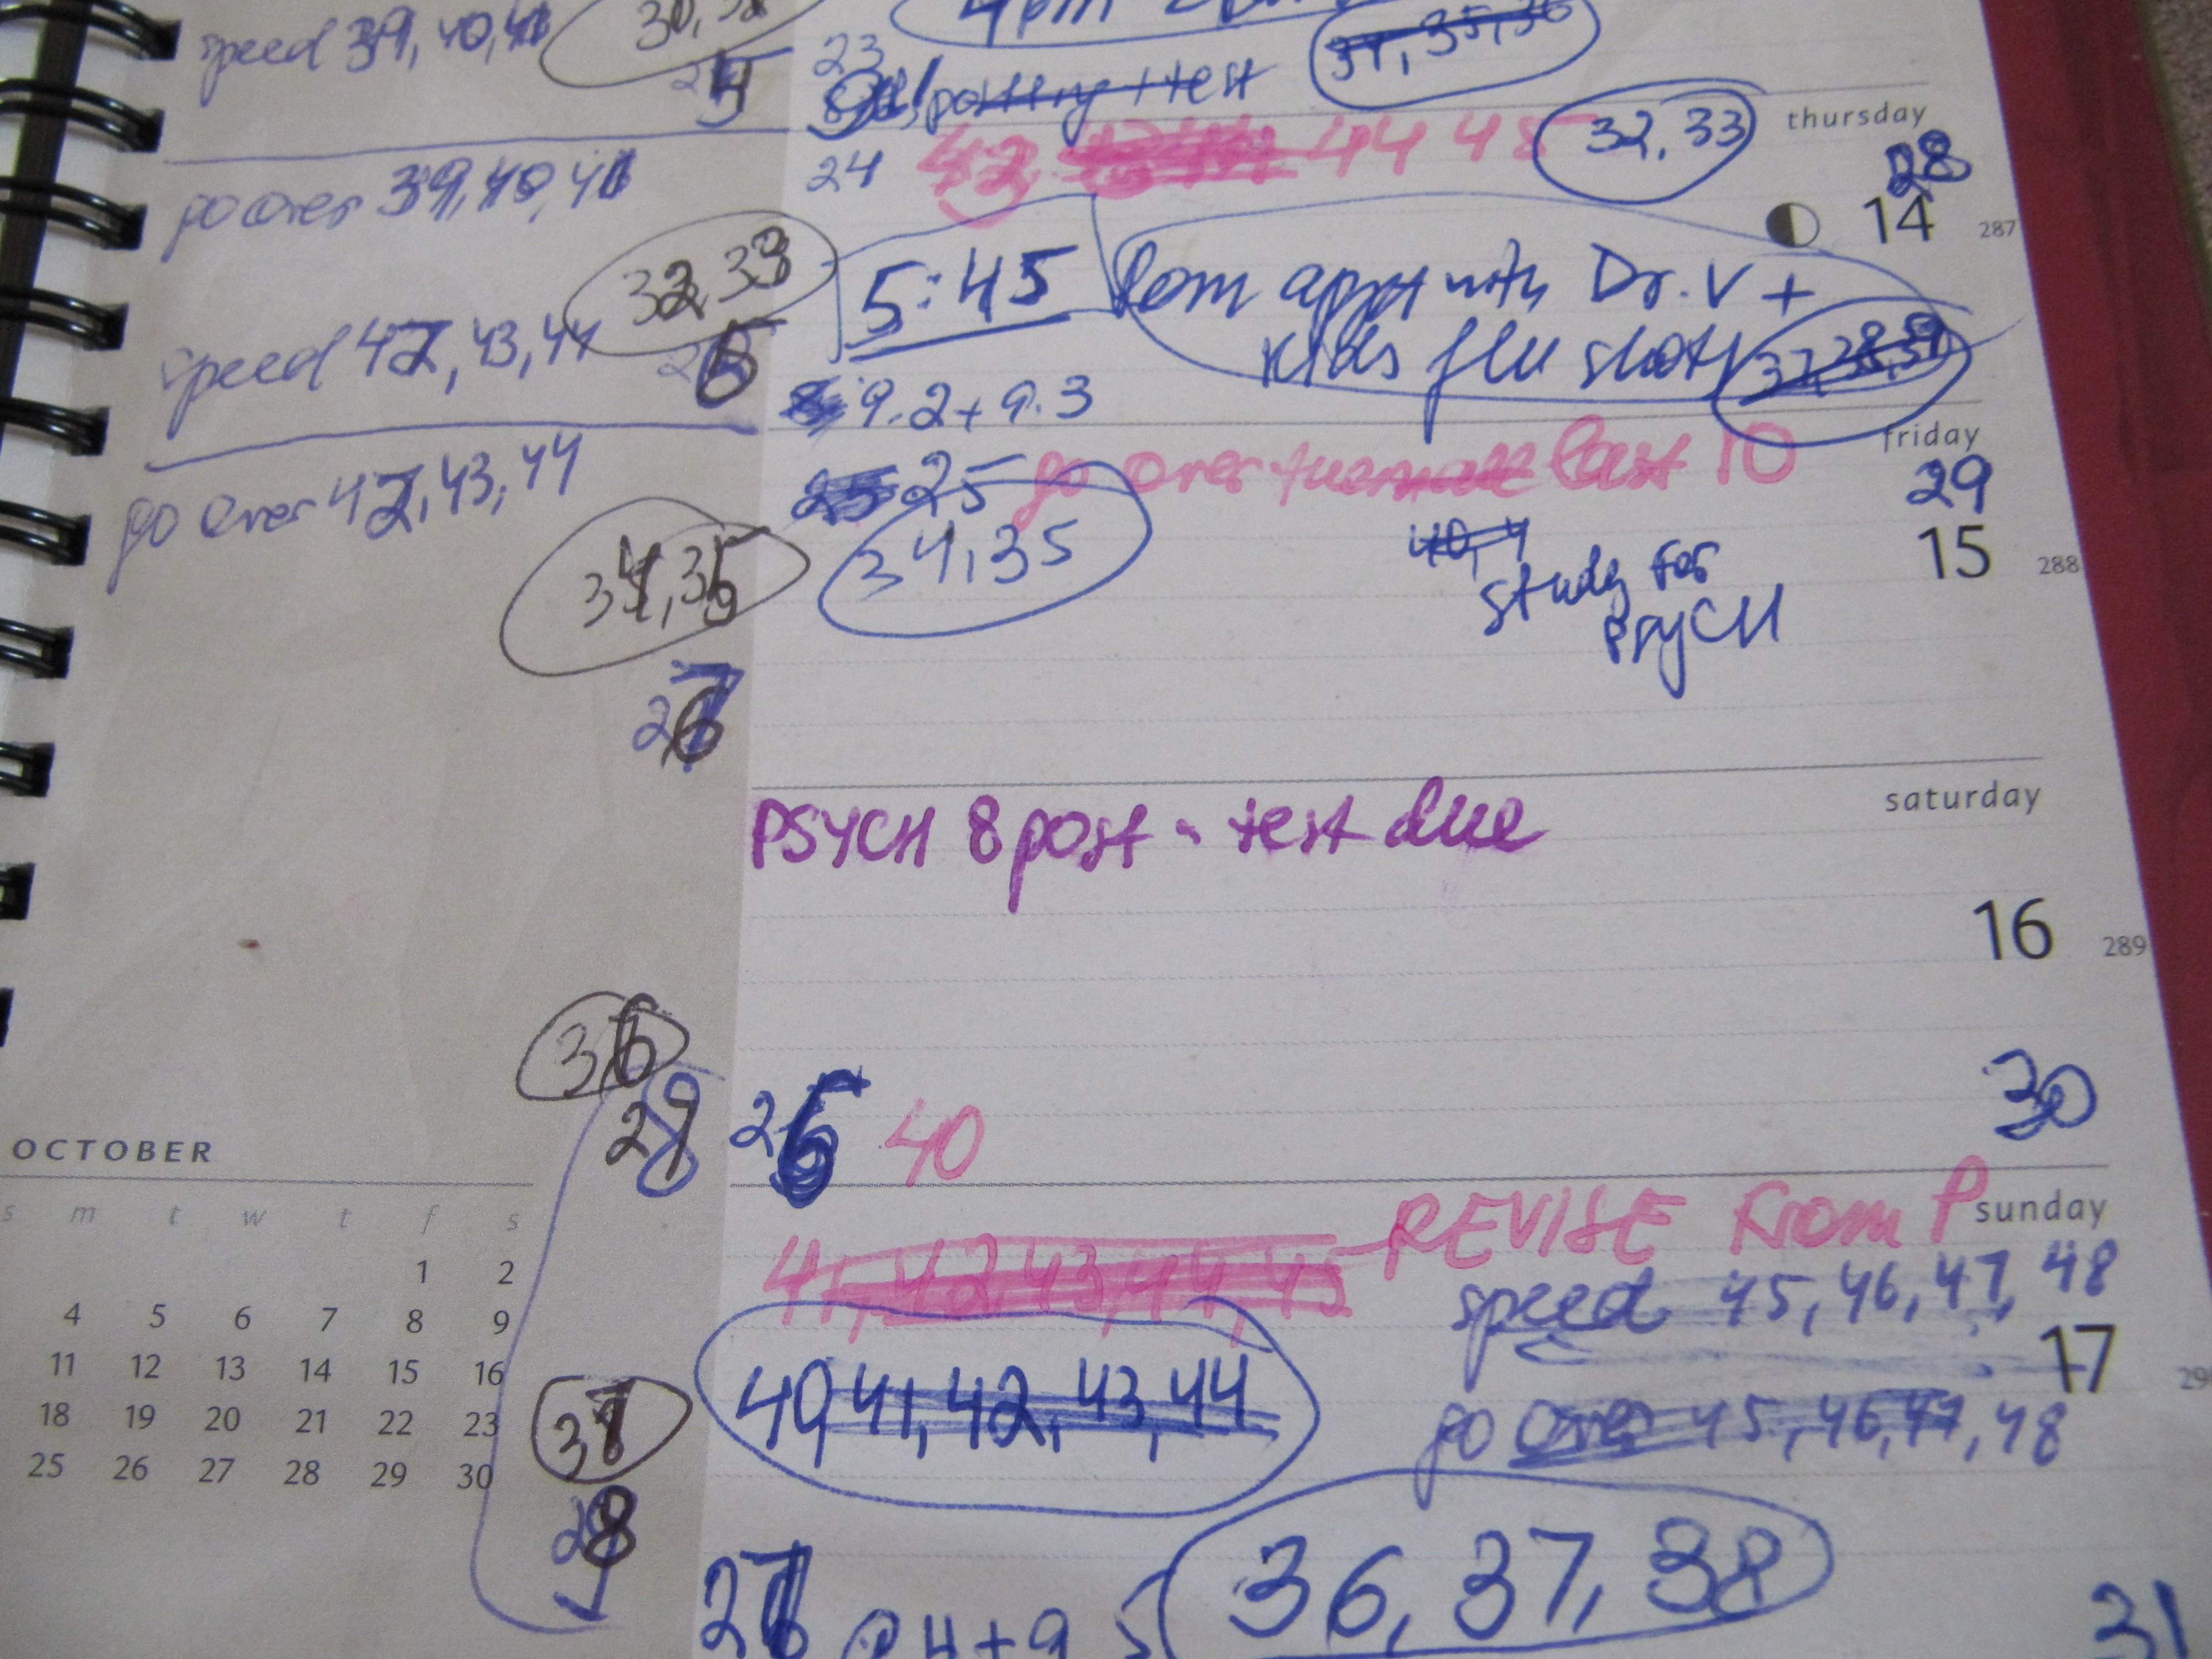 speed 39, 40, 41
30,
23
go over 39, 40, 41
24
44 45
32, 33
thursday
28
14
287
32, 33
5:45
appt with Dr. V +
kids flu shots
speed 42, 43, 44
9.2 + 9.3
go over 42, 43, 44
25
go over
last 10
friday
29
15
288
34, 35
34, 35
study for
PSYCH
PSYCH 8 post - test due
saturday
16
289
36
40
30
OCTOBER
s m t w t f s
1 2
4 5 6 7 8 9
11 12 13 14 15 16
18 19 20 21 22 23
25 26 27 28 29 30
REVISE From P
sunday
41, 42, 43, 44, 45
speed 45, 46, 47, 48
17
40, 41, 42, 43, 44
go over 45, 46, 47, 48
37
36, 37, 38
31